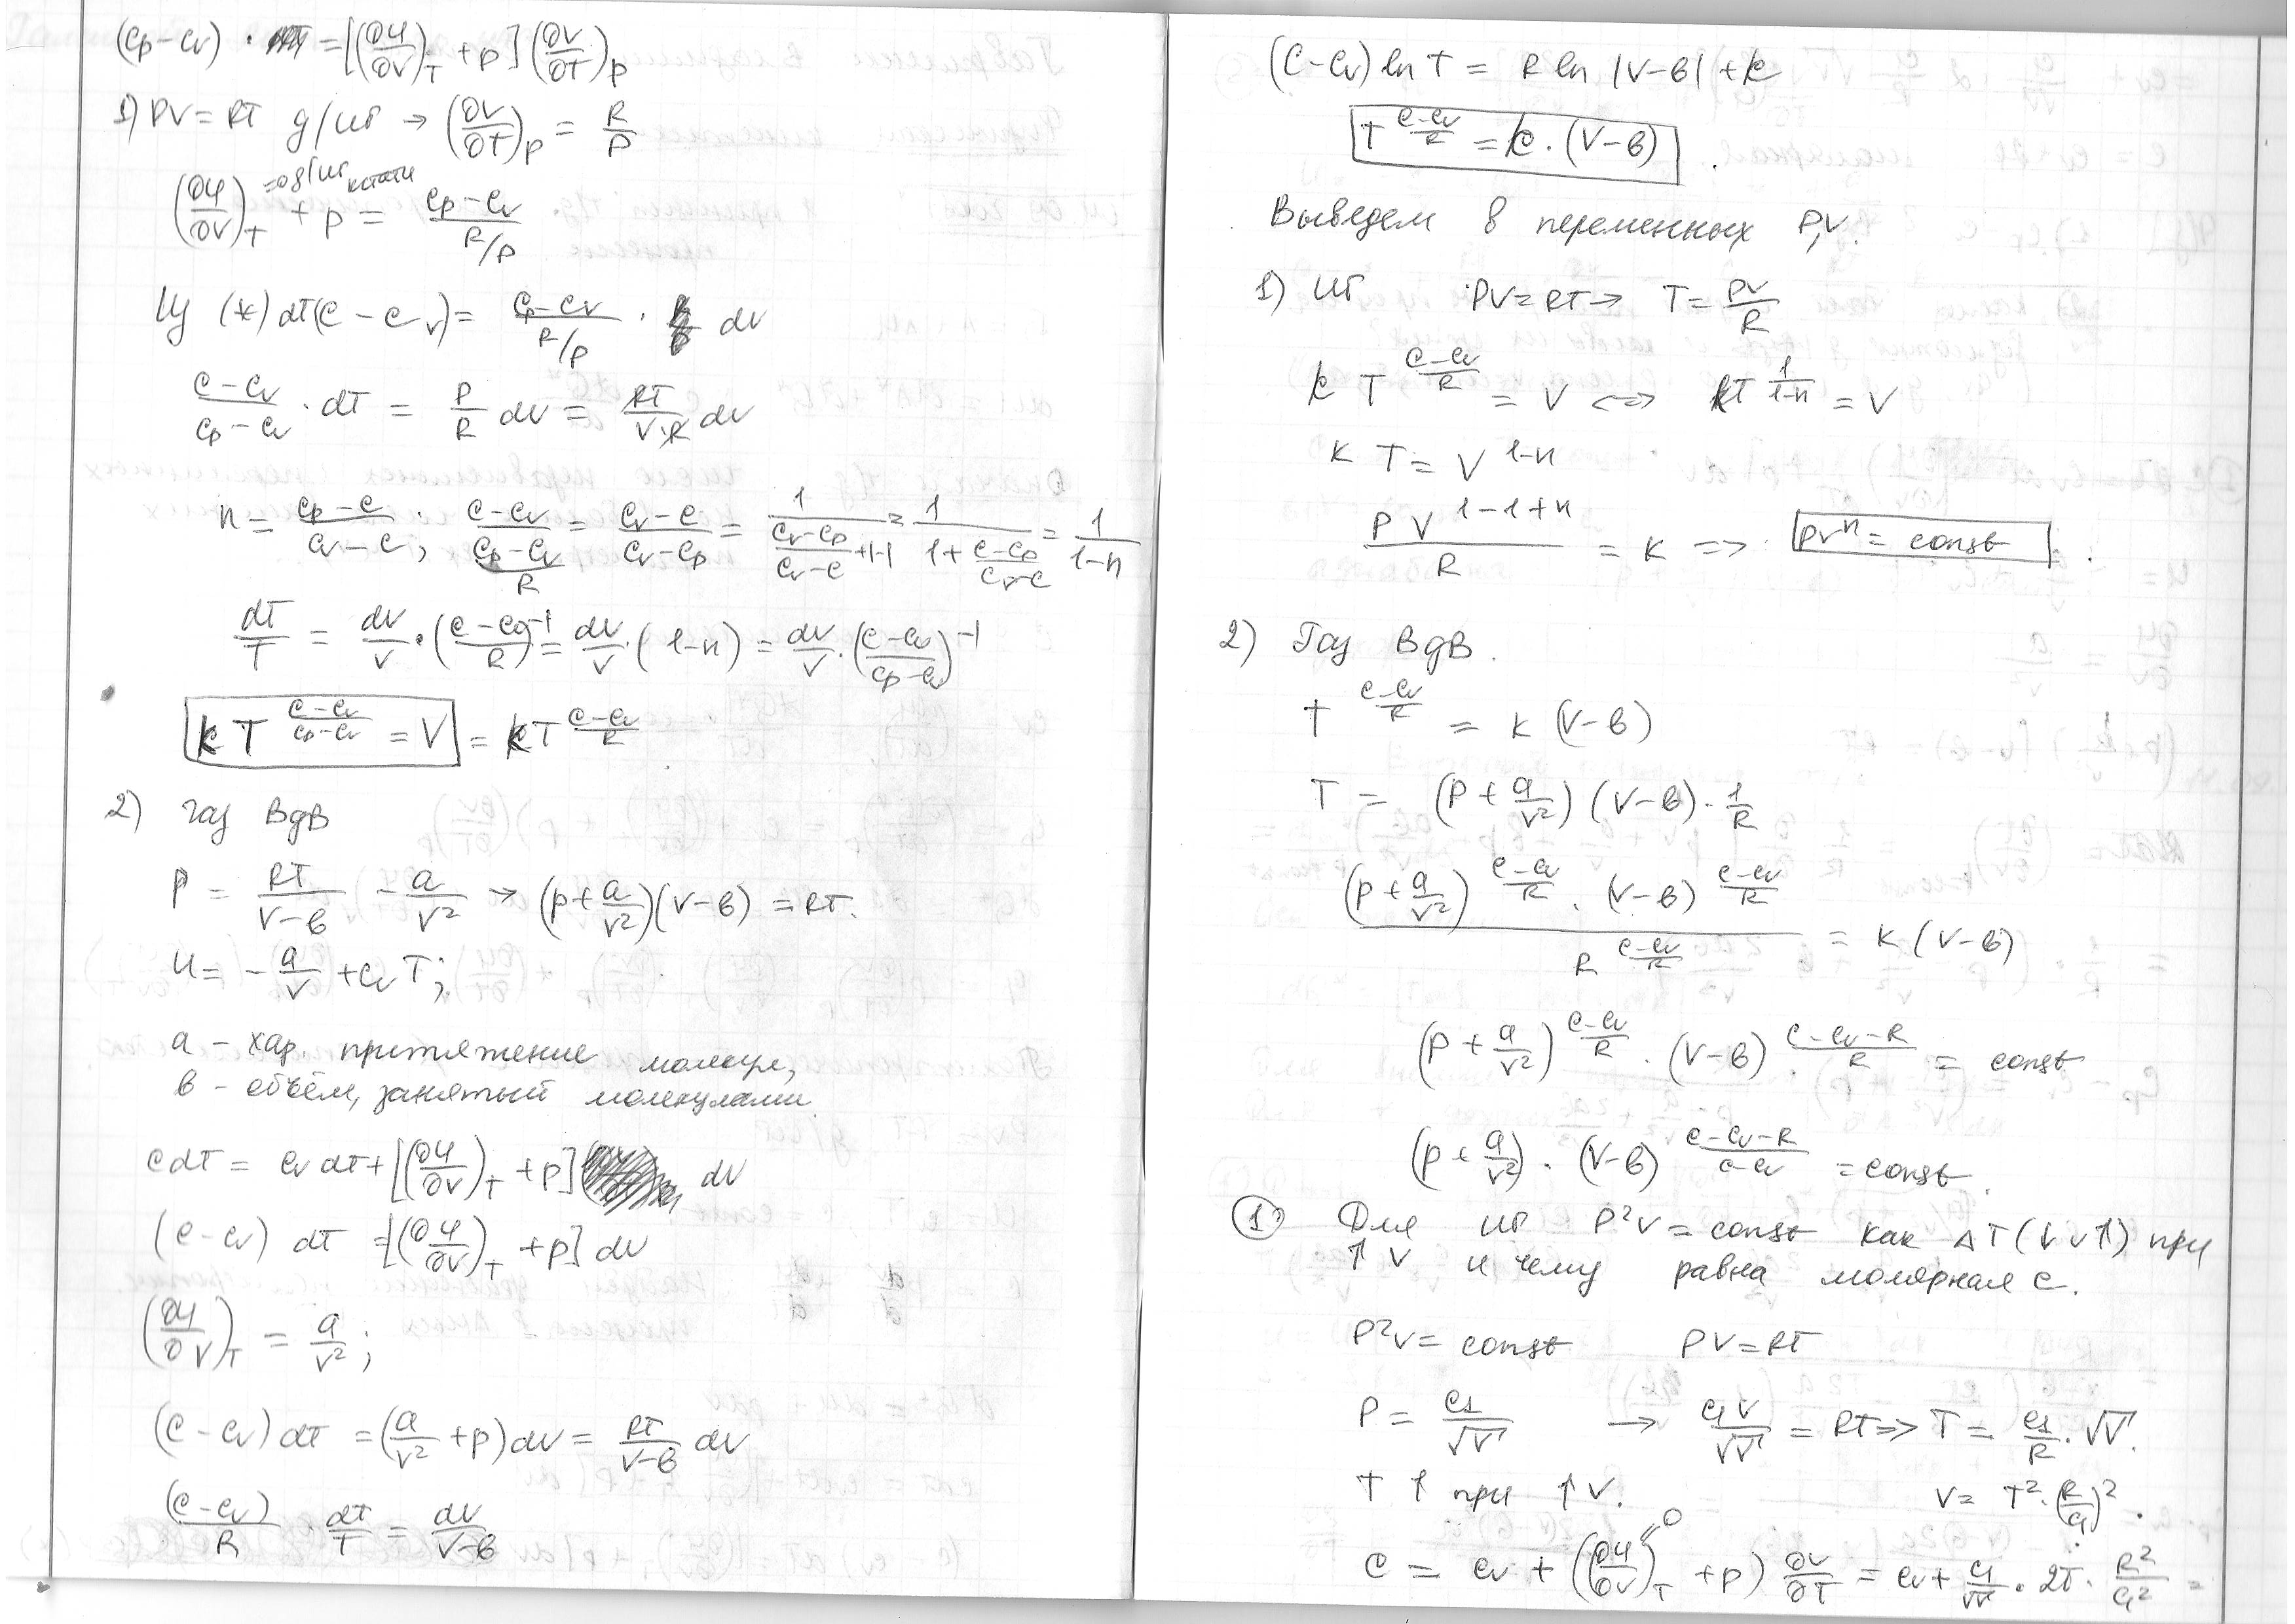 (Cp − Cv) · = [(∂U/∂V)_T + p] (∂V/∂T)_p
1) PV = RT д/иг → (∂V/∂T)_p = R/P
(∂U/∂V)_T =0 д/иг кстати + p = (Cp − Cv)/(R/p)
Из (*) dT(C − Cv) = (Cp − Cv)/(R/p) · dV
(C − Cv)/(Cp − Cv) · dT = P/R dV = RT/(V·R) dV
n = (Cp − C)/(Cv − C); (C − Cv)/(Cp − Cv) = (Cv − C)/(Cv − Cp) = 1/((Cv − Cp)/(Cv − C) + 1 − 1) = 1/(1 + (C − Cp)/(Cv − C)) = 1/(1 − n)
R
dT/T = dV/V · ((C − Cv)/R)^−1 = dV/V · (1 − n) = dV/V · ((C − Cv)/(Cp − Cv))^−1
k T^((C − Cv)/(Cp − Cv)) = V = k T^((C − Cv)/R)
2) Газ ВдВ
P = RT/(V − в) − a/V² → (p + a/V²)(V − в) = RT.
U = − a/V + Cv T;
a – хар. притяжение молекул,
в – объём, занятый молекулами.
C dT = Cv dT + [(∂U/∂V)_T + p] dV
(C − Cv) dT = [(∂U/∂V)_T + p] dV
(∂U/∂V)_T = a/V²;
(C − Cv) dT = (a/V² + p) dV = RT/(V − в) dV
(C − Cv)/R dT/T = dV/(V − в)
(C − Cv) ln T = R ln |V − в| + k
T^((C − Cv)/R) = k · (V − в).
Выведем в переменных P,V.
1) ИГ PV = RT → T = PV/R
k T^((C − Cv)/R) = V <=> kT^(1/(1 − n)) = V
k T = V^(1−n)
P V^(1−1+n)/R = k => PV^n = const.
2) Газ ВдВ.
T^((C − Cv)/R) = k (V − в)
T = (P + a/V²)(V − в) · 1/R
(p + a/V²)^((C − Cv)/R) · (V − в)^((C − Cv)/R) / R^((C − Cv)/R) = k (V − в)
(P + a/V²)^((C − Cv)/R) · (V − в)^((C − Cv − R)/R) = const
(p + a/V²) · (V − в)^((C − Cv − R)/(C − Cv)) = const.
① Для ИГ P²V = const как ΔT (↓ v ↑) при
↑ V и чему равна молярная C.
P²V = const PV = RT
P = C1/√V → C1 V/√V = RT => T = C1/R · √V.
T ↑ при ↑ V. V = T² · (R/C1)².
C = Cv + ((∂U/∂V)_T =0 + p) ∂V/∂T = Cv + C1/√V · 2T · R²/C1² =